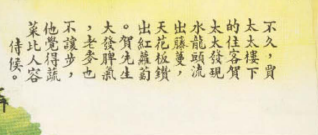 不久，賈
太太樓下
的住客賀
太太發現
水龍頭流
出藤蔓，
天花板鑽
出紅蘿蔔
。賀先生
大發脾氣
，老麥也
不讓步，
他覺得蔬
菜比人容
易侍侯。